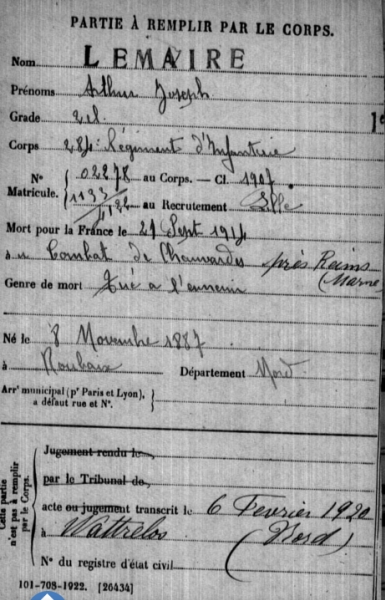 PARTIE À REMPLIR PAR LE CORPS.
Nom LEMAIRE
Prénoms Arthur Joseph
Grade 2 cl.
Corps 284 Régiment d'Infanterie
N° 02278 au Corps. — Cl. 1907
Matricule. 1133 au Recrutement Lille
Mort pour la France le 21 Sept 1914
à u Combat de Chauvardes près Reims (Marne
Genre de mort Tué a l'ennemi
Né le 8 Novembre 1887
à Roubaix Département Nord
Arr' municipal (p' Paris et Lyon),
à défaut rue et N°.
Cette partie n'est pas à remplir par le Corps.
Jugement rendu le
par le Tribunal de
acte ou jugement transcrit le 6 Fevrier 1920
à Wattrelos (Nord)
N° du registre d'état civil
101-708-1922. [26434]